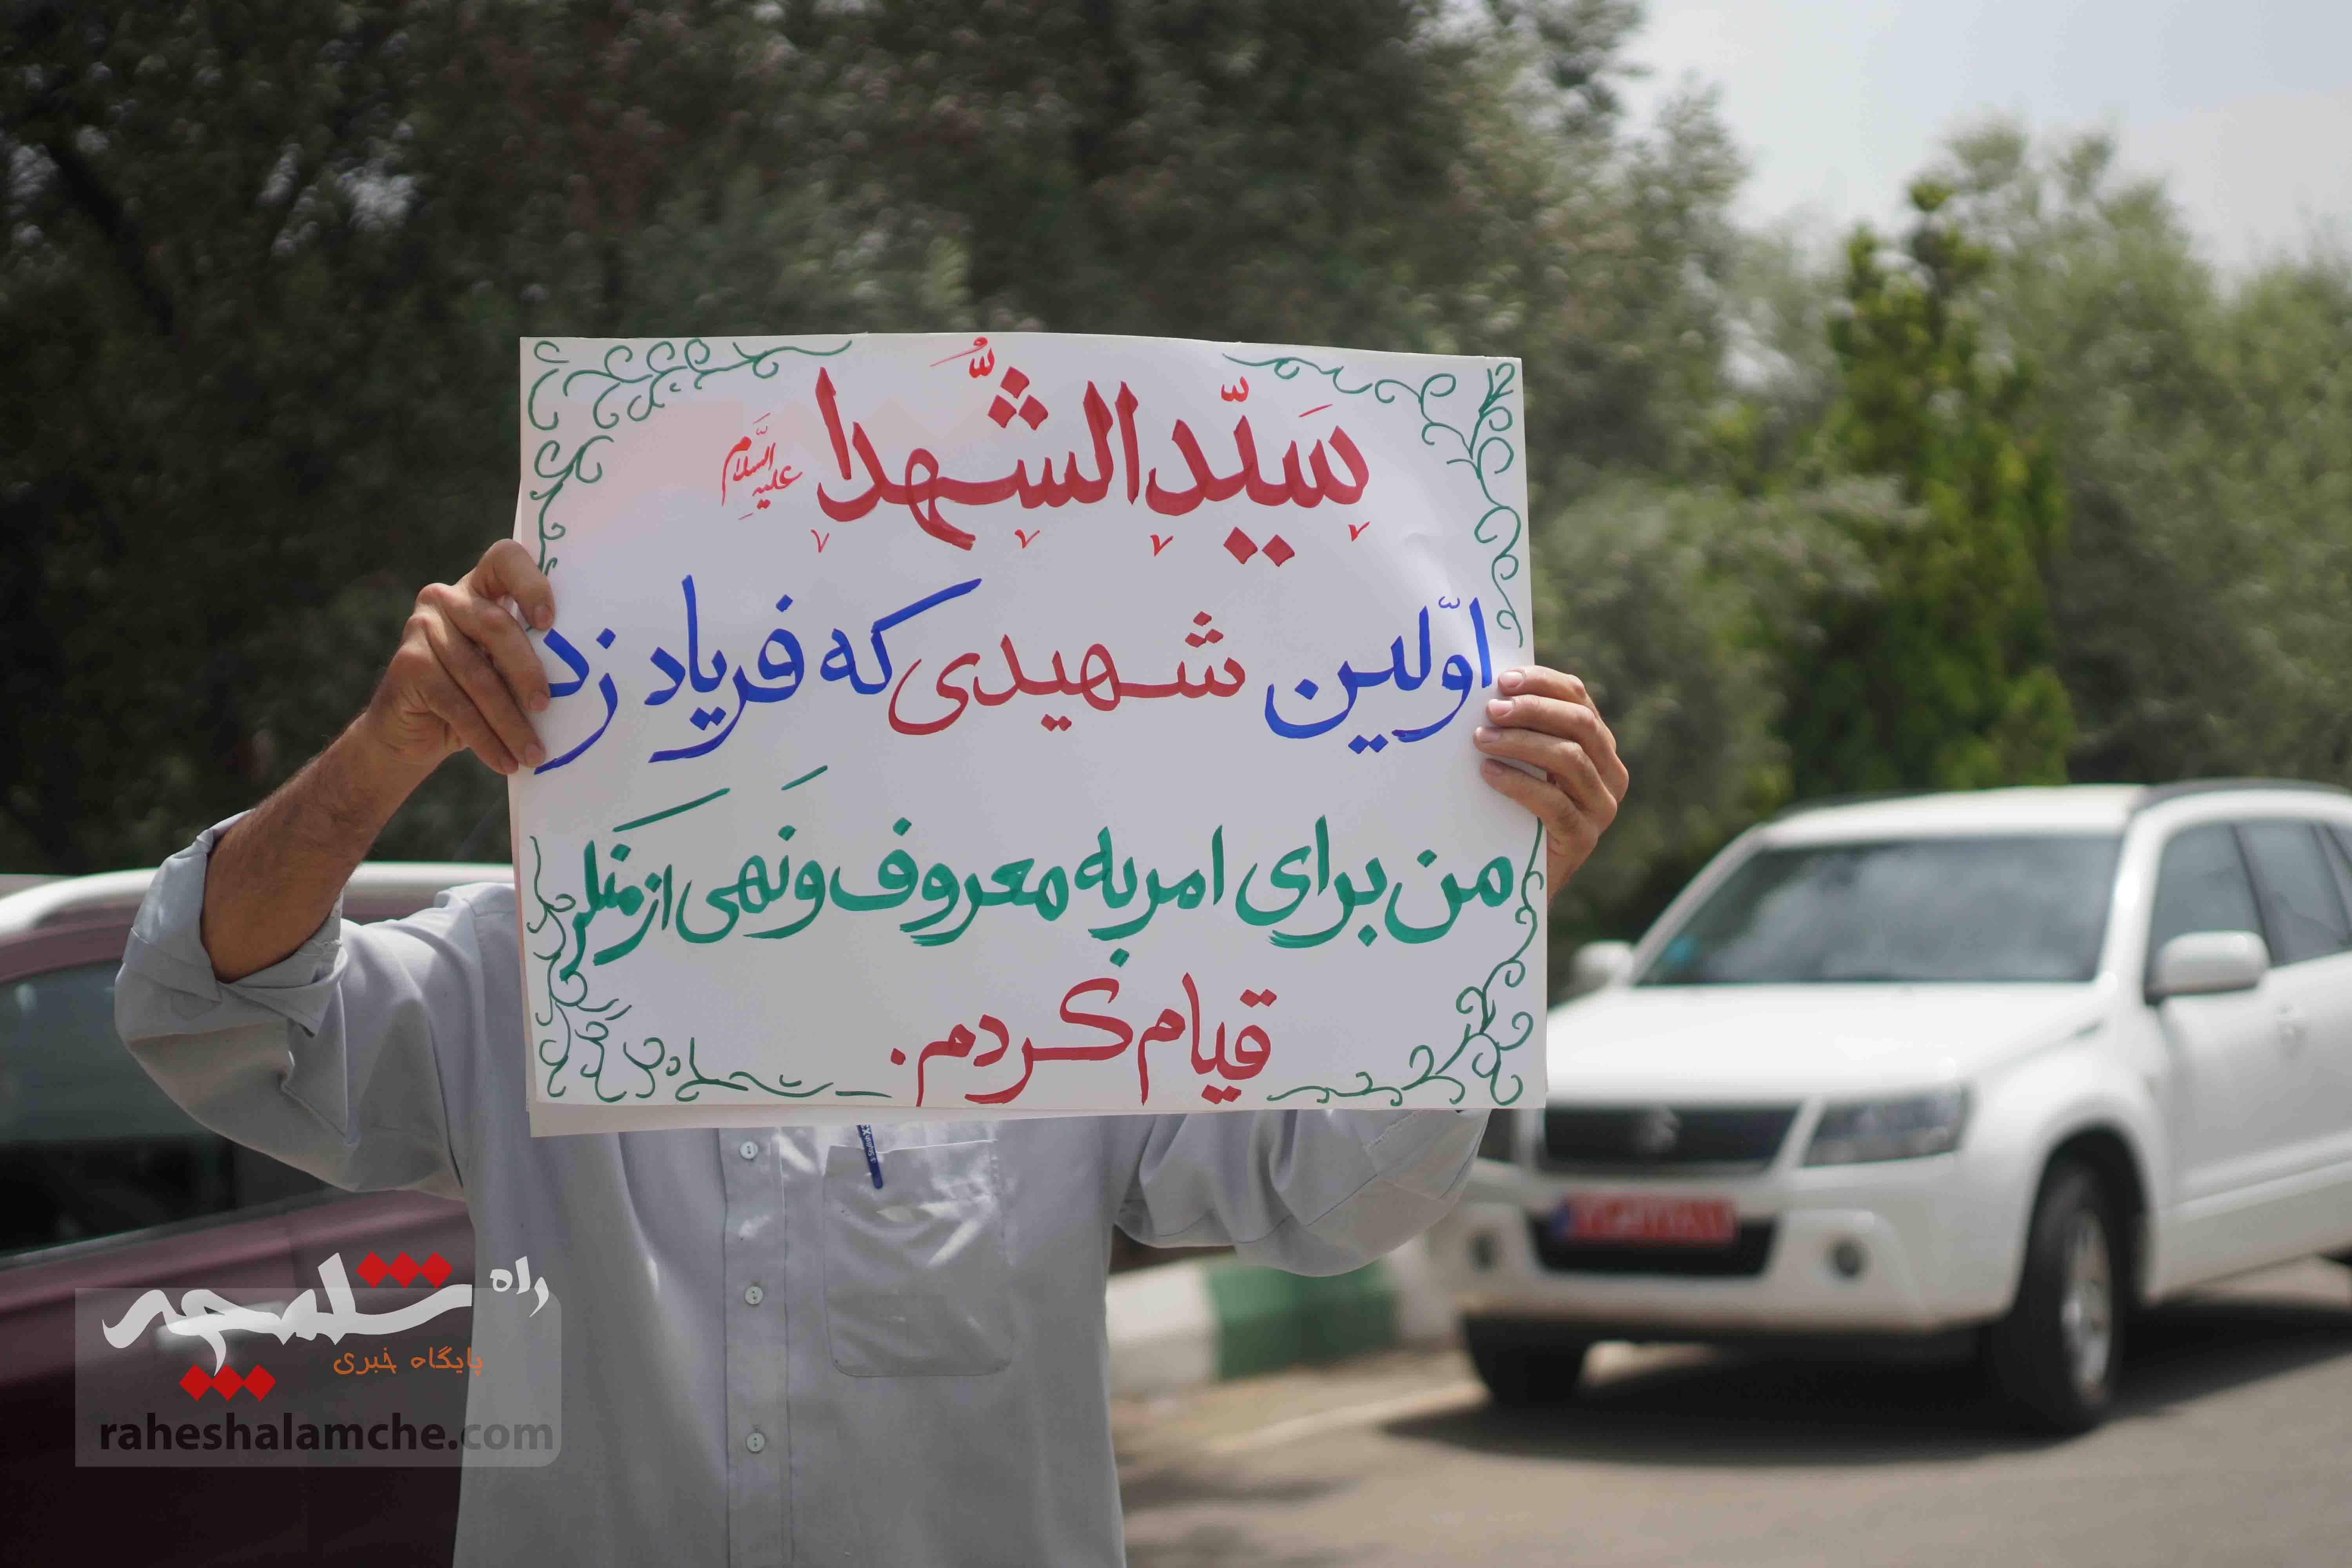 سَیّدالشُّهدا علیه السَّلام
اوّلین شهیدی که فریاد زد
من برای امر به معروف و نَهی از منکَر
قیام کردم.
راه شلمچه
پایگاه خبری
raheshalamche.com